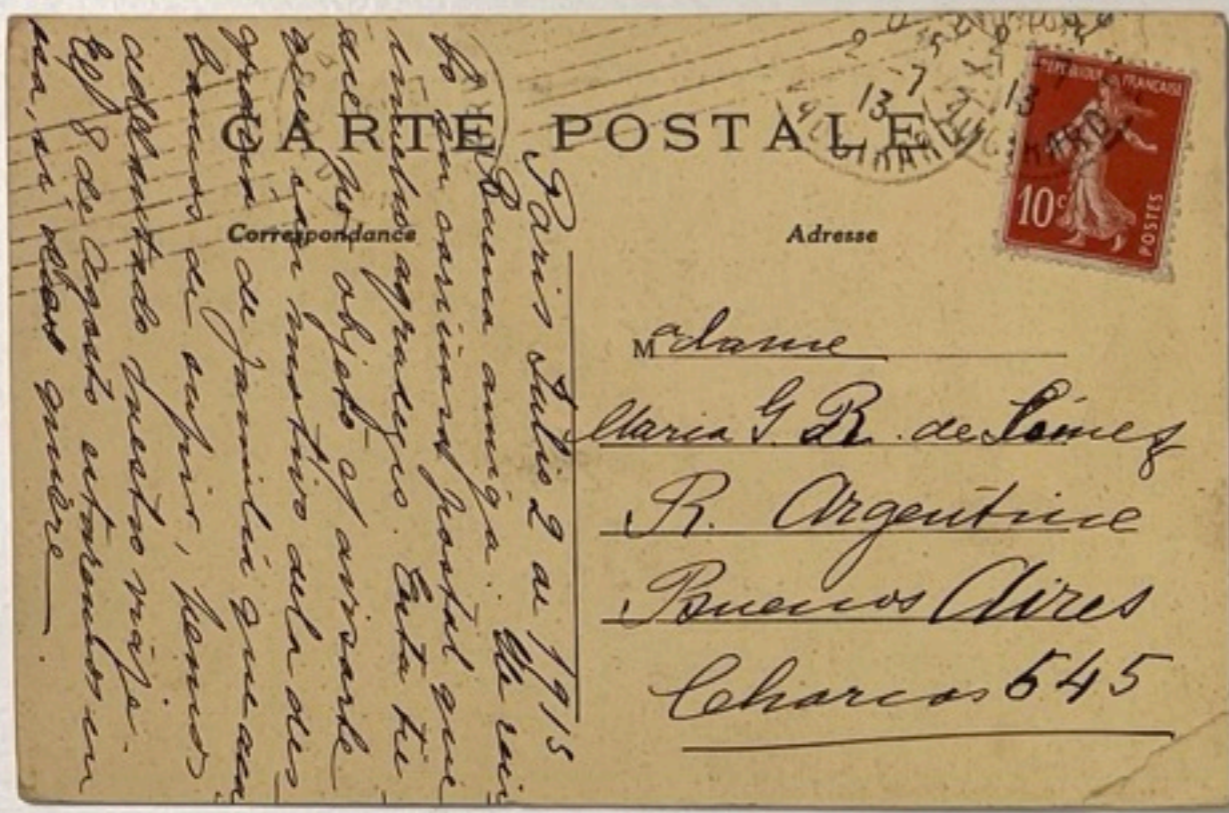 CARTE POSTALE
Correspondance
Adresse
REPUBLIQUE FRANÇAISE
10c
POSTES
7
13
Paris Julio 2 de 1913
Buena amiga: He reci
bo su cariñosa postal que
mucho agradezco. Esta tie
ne por objeto el avisarle
que con motivo de la des
gracia de familia que aca
bamos de sufrir, hemos
adelantado nuestro viaje.
El 8 de Agosto estaremos en
esa, si Dios quiere
Madame
Maria G. R. de Gómez
R. Argentine
Buenos Aires
Charcas 645